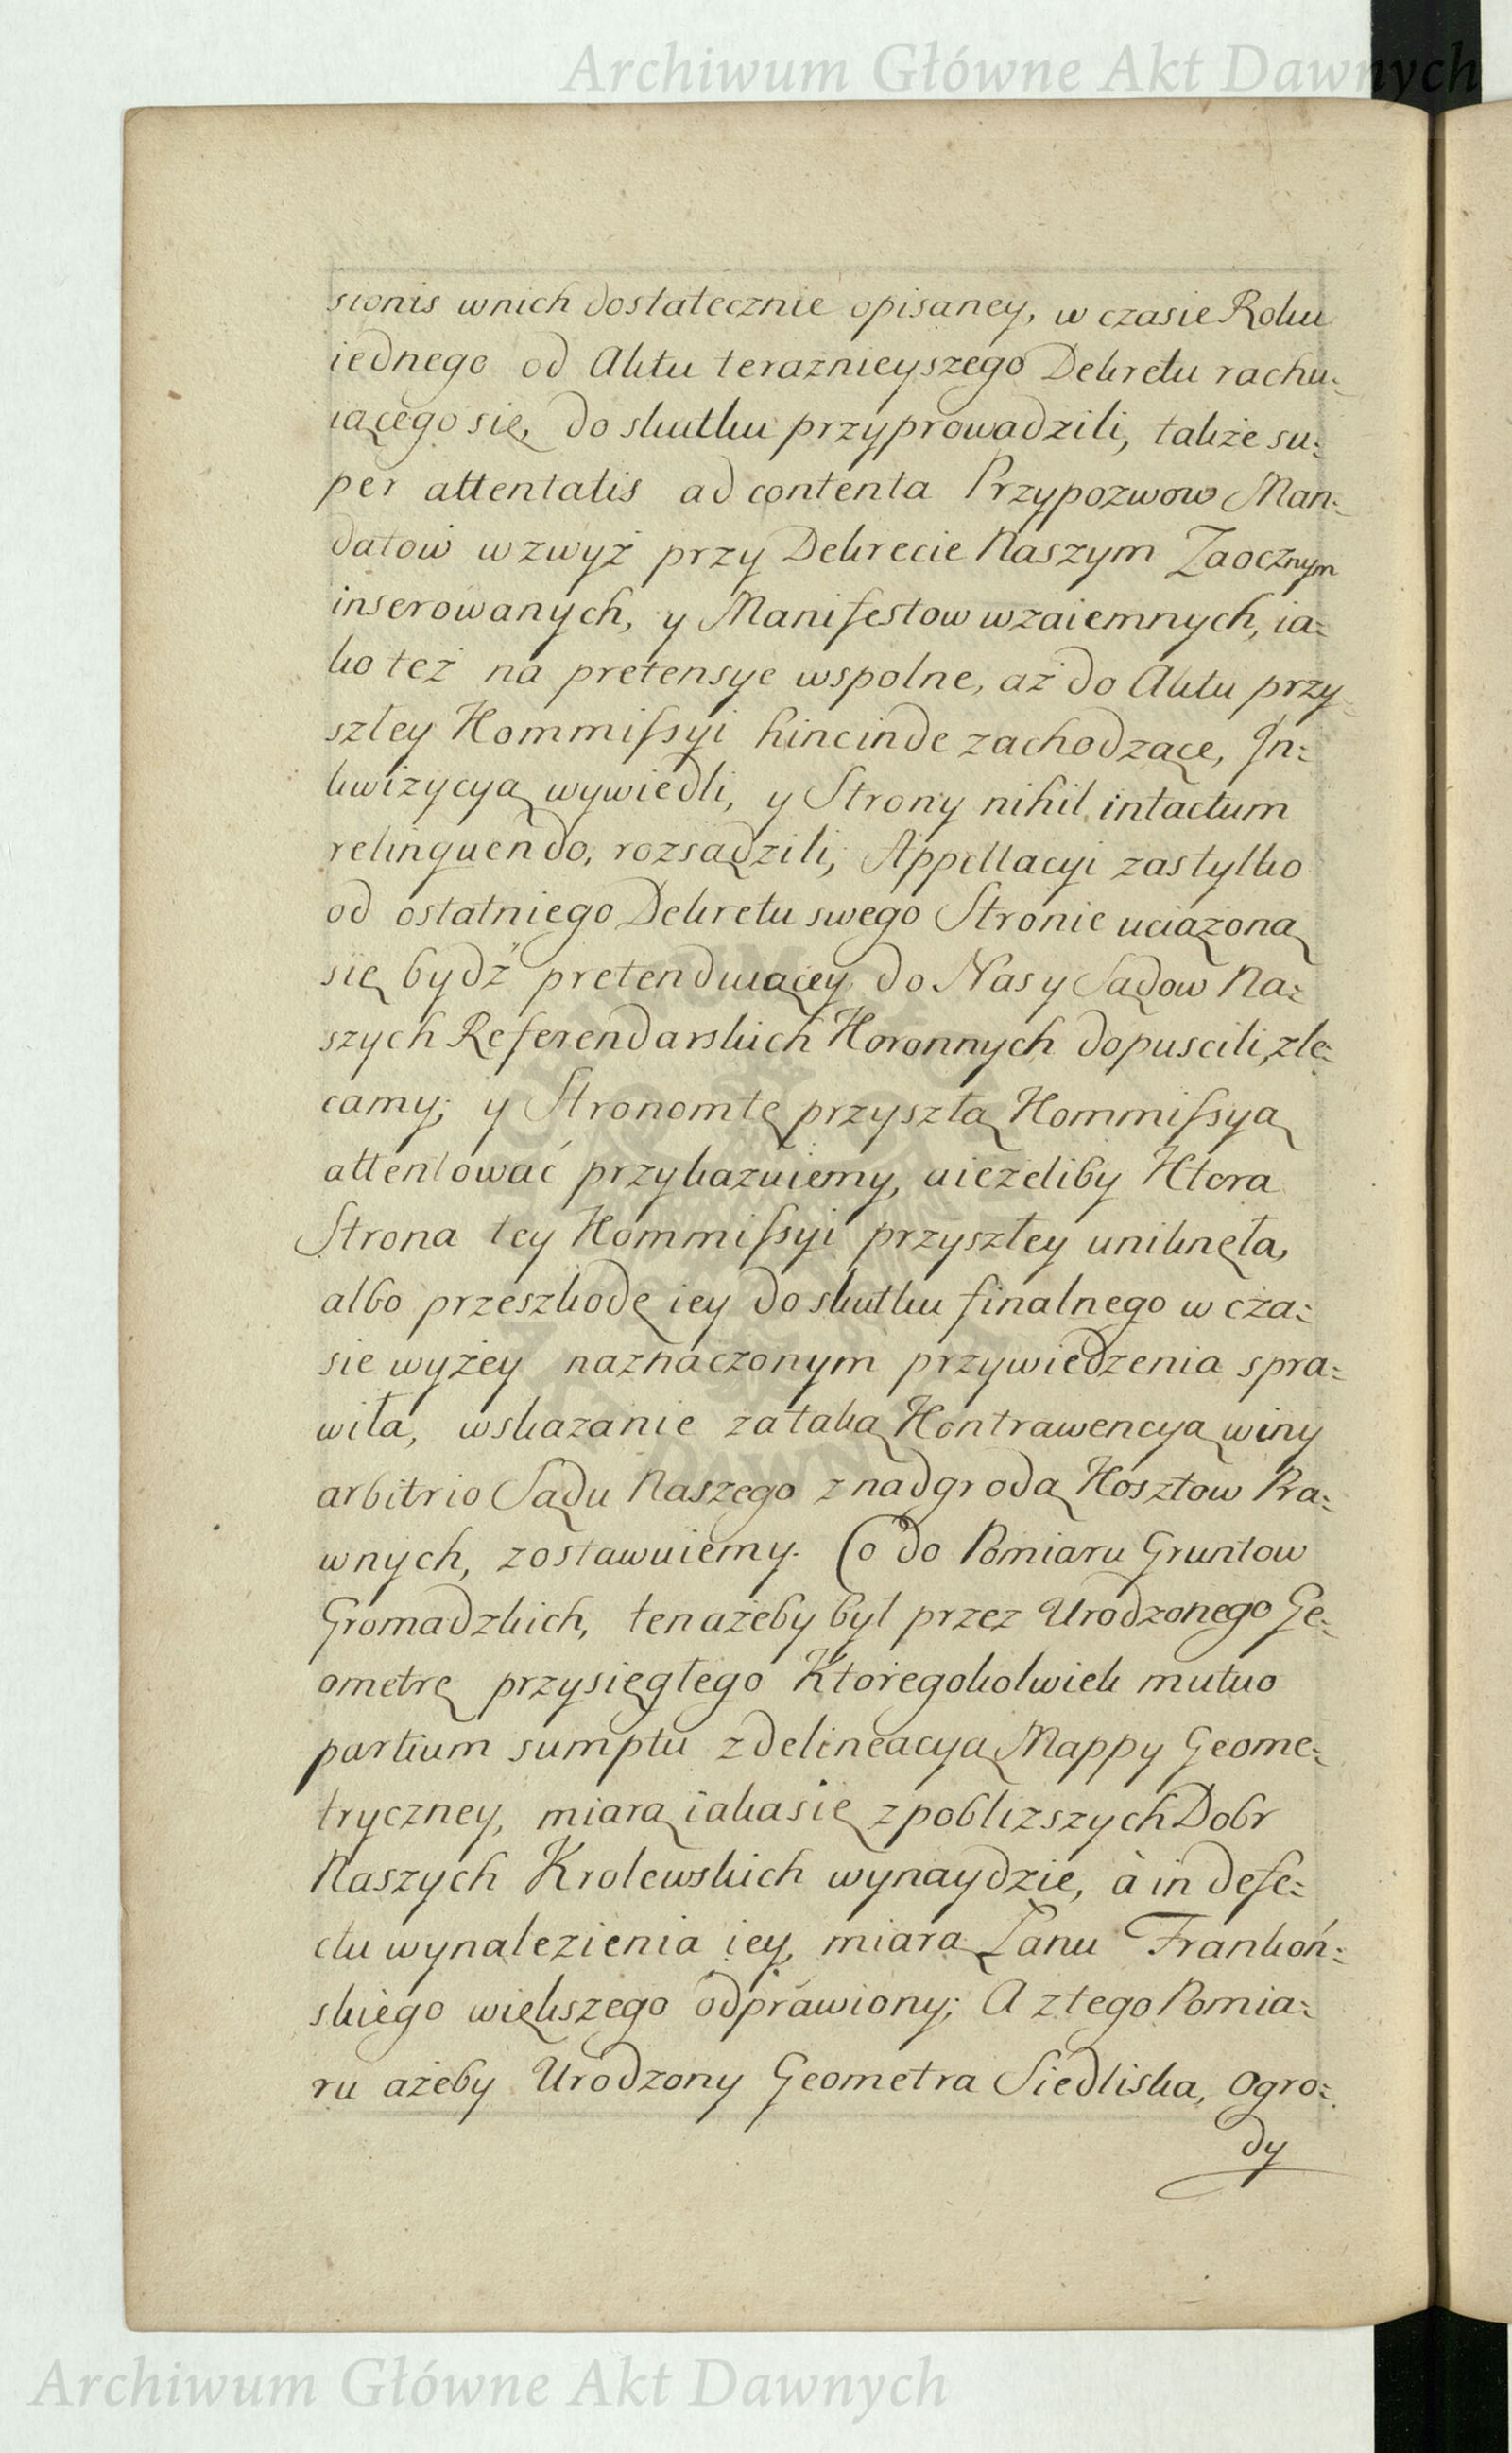 Archiwum Główne Akt Dawnych
sionis wnich dostatecznie opisaney, w czasie Roku
iednego od Aktu teraznieyszego Dekretu rachu:
iącego się, do skutku przyprowadzili, także su:
per attentatis ad contenta Przypozwow Man:
datow wzwyż przy Dekrecie Naszym Zaocznym
inserowanych, y Manifestow wzaiemnych, ia:
ko też na pretensye wspolne, aż do Aktu przy
szłey Kommissyi hincinde zachodzące, In:
kwizycyą wywiedli, y Strony nihil intactum
relinquendo, rozsądzili, Appellacyi zastylko
od ostatniego Dekretu swego Stronie uciążoną
się bydź pretenduiącey do Nas y Sądow Na:
szych Referendarskich Koronnych dopuscili, zle:
camy; y Stronomtę przyszłą Kommissyą
attentować przykazuiemy, aieżeliby Ktora
Strona tey Kommissyi przyszłey uniknęła,
albo przeszkodę iey do skutku finalnego w cza:
sie wyżey naznaczonym przywiedzenia spra:
wiła, wskazanie zataką Kontrawencyą winy
arbitrio Sądu Naszego z nadgrodą Kosztow Pra:
wnych, zostawuiemy. Co do Pomiaru Gruntow
Gromadzkich, tenażeby był przez Urodzonego Ge:
ometrę przysięgłego Ktoregokolwiek mutuo
partium sumptu z delineacyą Mappy Geome:
tryczney, miarą iakasię zpobliższych Dobr
Naszych Krolewskich wynaydzie, à in defe:
ctu wynalezienia iey, miarą Łanu Frankoń:
skiego większego odprawiony; A ztego Pomia:
ru ażeby Urodzony Geometra Siedliska, Ogro:
dy
Archiwum Główne Akt Dawnych